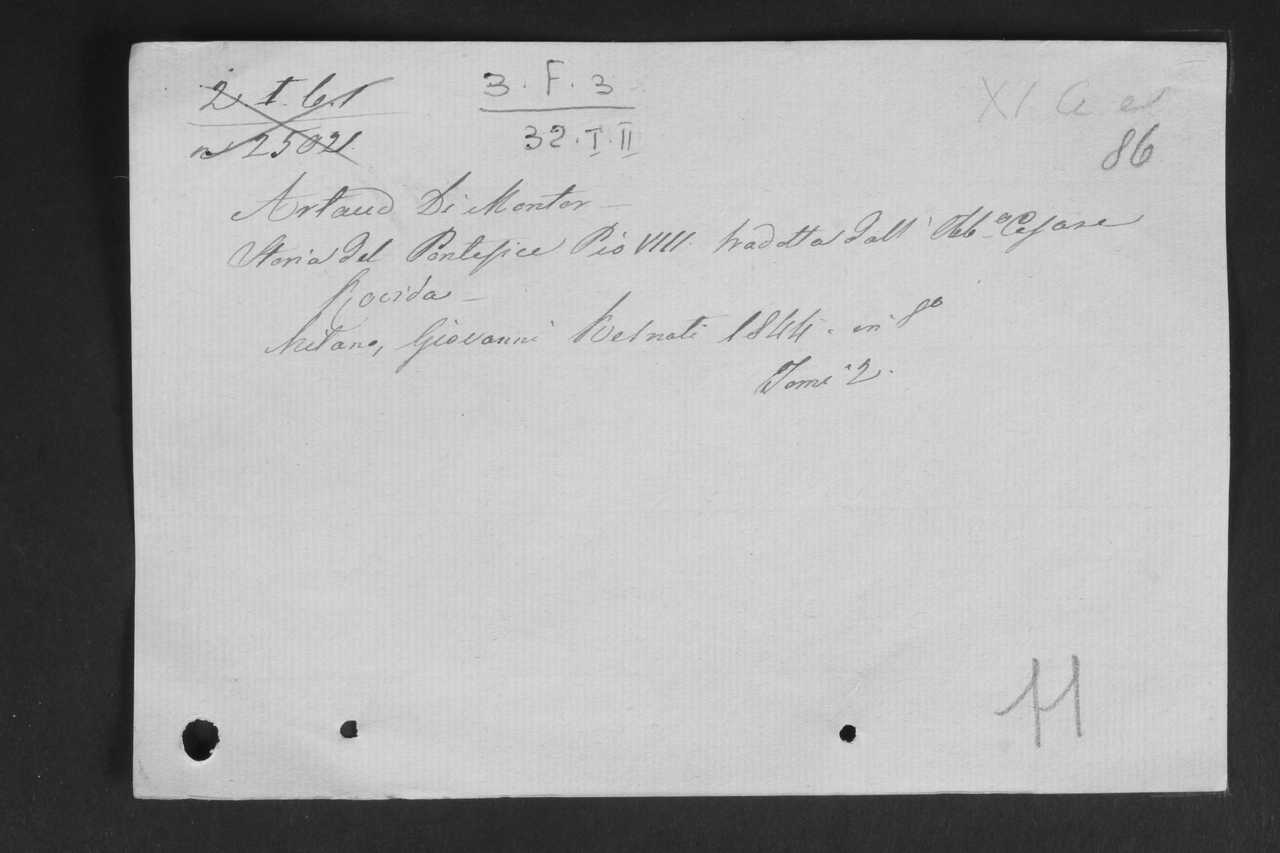 2. I. 6.1
n 25021.
3. F. 3
32. I. II
86
Artaud Di Montor —
Storia del Pontefice Pio VIII. tradotta dall' Ab.e Cesare
Rovida —
Milano, Giovanni Resnati 1844. in 8°
Tomi 2.
11